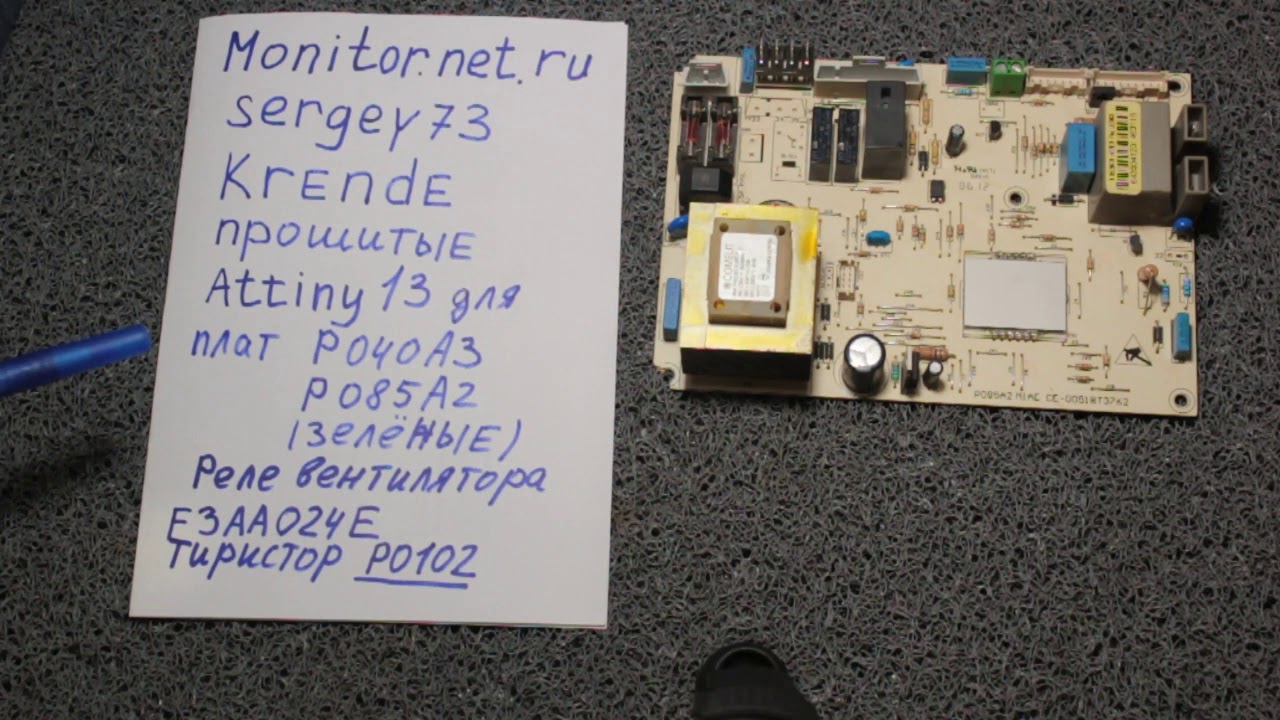 Monitor.net.ru
sergey73
KrEndE
прошитыЕ
Attiny 13 для
плат P040A3
P085A2
(зелёНыЕ)
Реле вентилятора
E3AA024E
Тиристор P0102
0612
P085A2 NIAC CE-0051BT3762